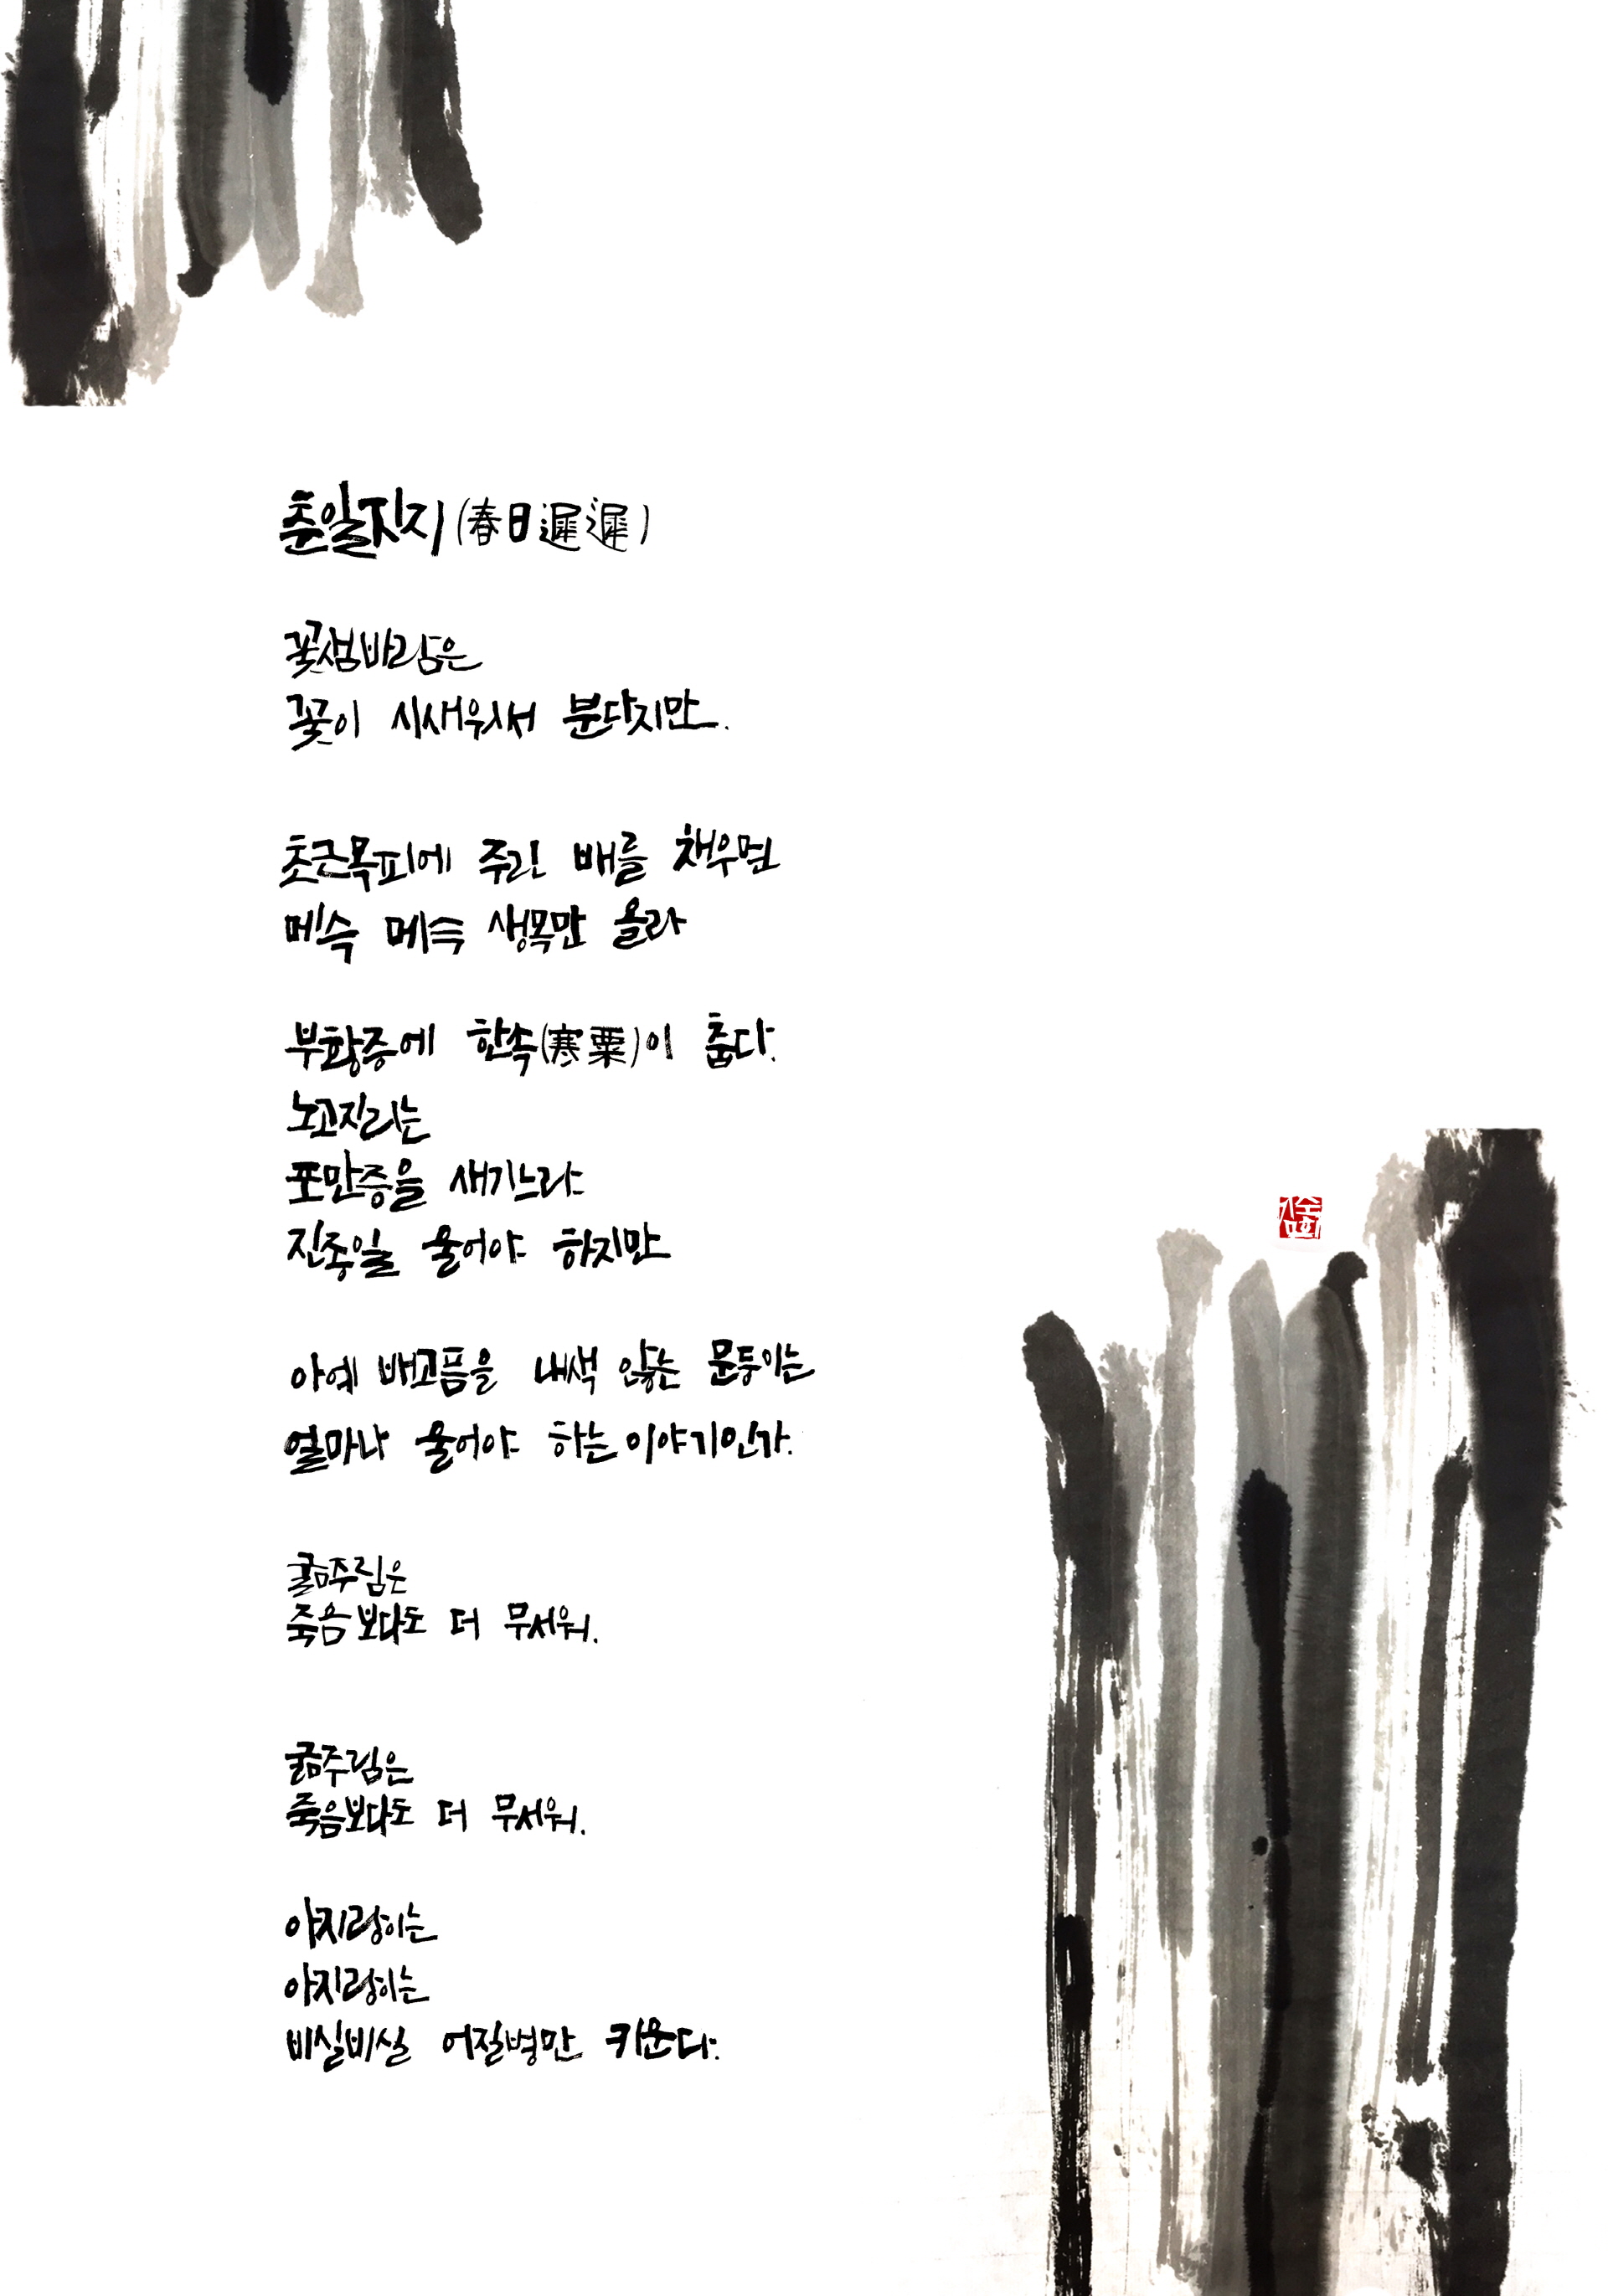 춘일지지(春日遲遲)
꽃샘바람은
꽃이 시새워서 분다지만.
초근목피에 주린 배를 채우면
메슥 메슥 생목만 올라
부황증에 한속(寒粟)이 춥다.
노고지리는
포만증을 새기느라
진종일 울어야 하지만
아예 배고픔을 내색 않는 문둥이는
얼마나 울어야 하는 이야기인가.
굶주림은
죽음보다도 더 무서워.
굶주림은
죽음보다도 더 무서워.
아지랑이는
아지랑이는
비실비실 어질병만 키운다.